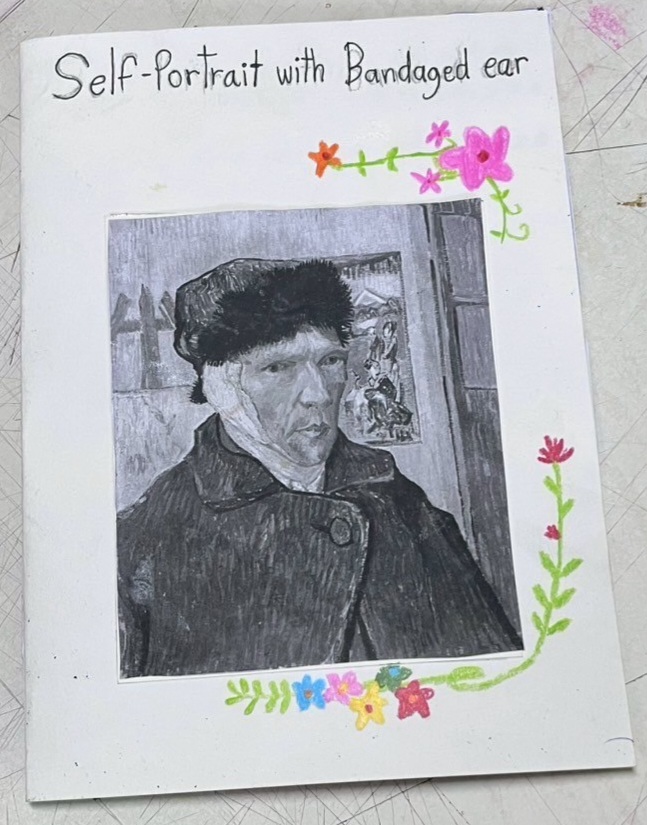 Self-Portrait with Bandaged ear